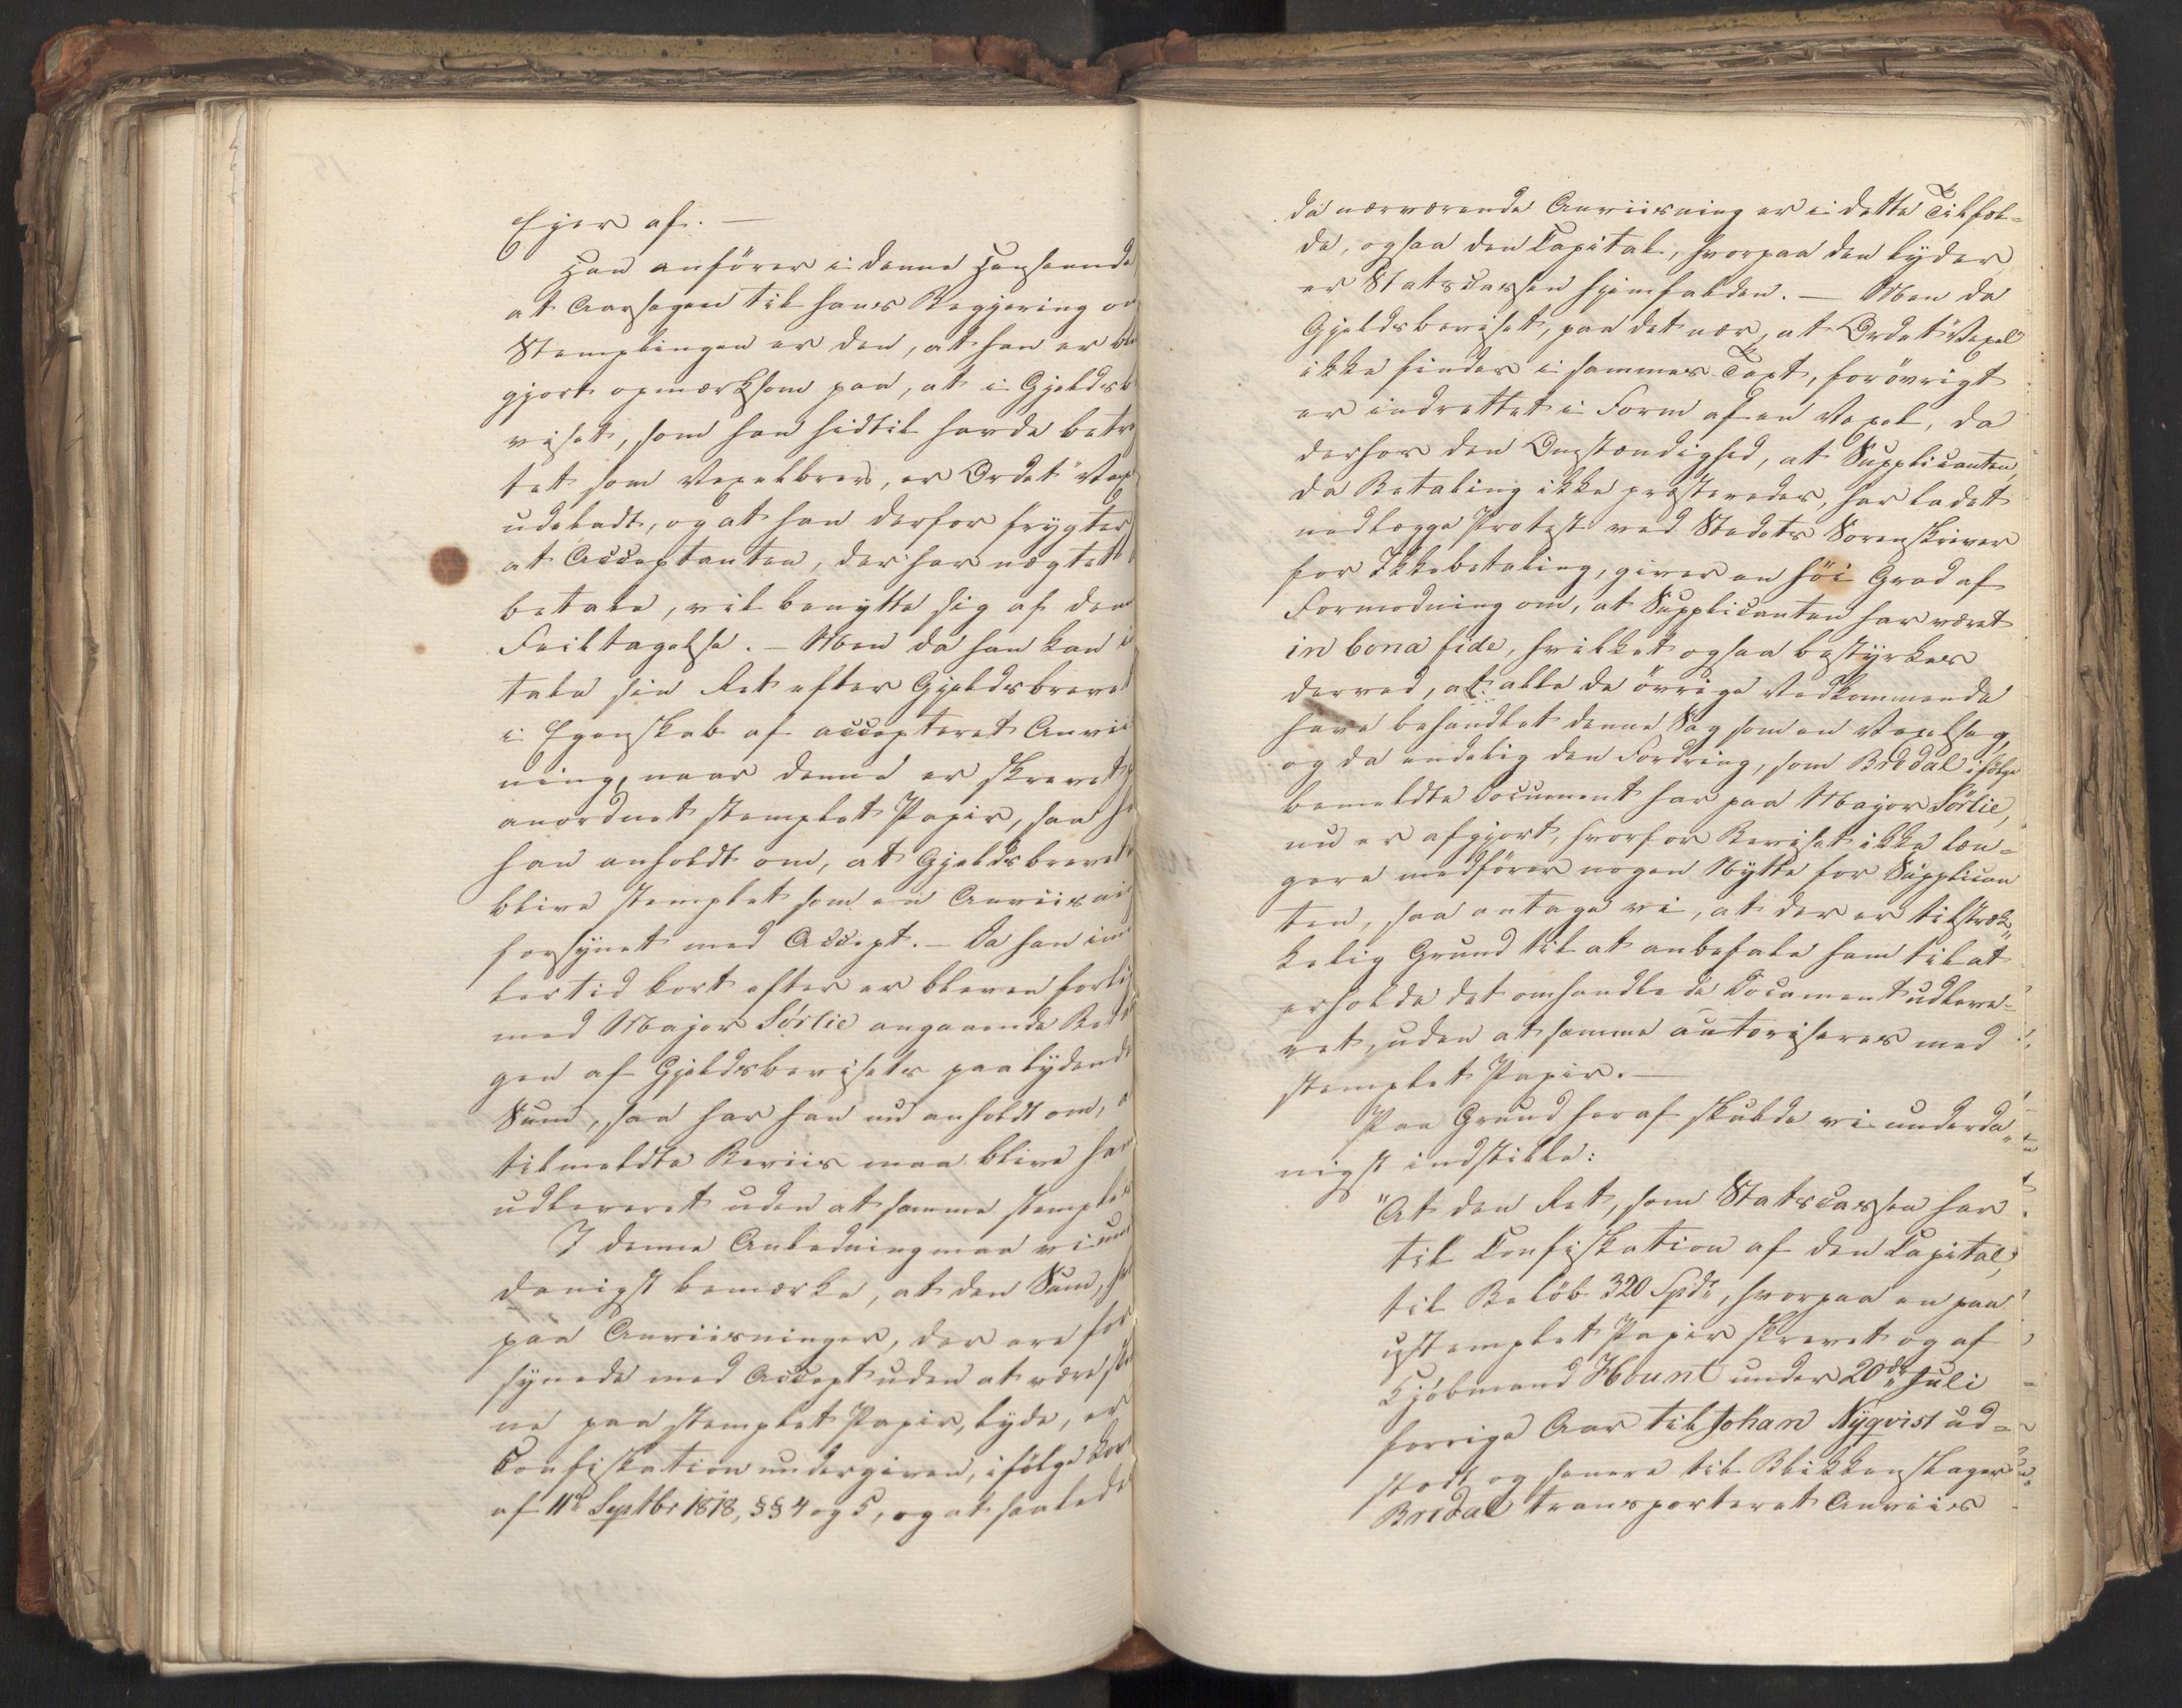 Ejer af. —
Han anförer i denne Henseende
at Aarsagen til hans Begjering om
Stemplingen er den, at han er ble
gjort opmærksom paa, at i Gjeldsbe
viset, som han hidtil havde betrag
tet som Vexelbrev, er Ordet "Vexel
udeladt, og at han derfor frygter
at Acceptanten, der har nægtet
betale, vil benytte sig af denne
Feiltagelse. — Men da han kan
tale sin Ret efter Gjeldsbrevet
i Egenskab af accepteret Anviis
ning, naar denne er skrevet
anordnet stemplet Papir, saa
han anholdt om, at Gjeldsbrevet
blive stemplet som en Anviisning
forsynet med Accept. — Da han imid
lertid kort efter er bleven forligt
med Major Sörlie angaaende
gen af Gjeldsbevisets paalydende
Sum, saa har han nu anholdt om,
tilmeldte Beviis maa blive ham
udleveret uden at samme stemples
I denne Anledning maa vi under
danigst bemærke, at den Sum,
paa Anviisninger, der ere for
synede med Accept uden at være skrev
ne paa stemplet Papir, lyde, er
Confiskation undergiven, ifölge Lov
af 11te Septbr 1818, §§ 4 og 5, og at saalede
da nærværende Anviisning er i dette Tilfæl=
de, ogsaa den Capital, hvorpaa den lyder,
er Statscassen hjemfalden. — Men da
Gjeldsbeviset, paa det nær, at Ordet "Vexel"
ikke findes i sammes Text, forövrigt
er indrettet i Form af en Vexel, da
derhos den Omstændighed, at Supplicanten,
da Betaling ikke præsteredes, har ladet
nedlægge Protest ved Stedets Sorenskriver
for Ikkebetaling, giver en höi Grad af
Formodning om, at Supplicanten har været
in bona fide, hvilket ogsaa bestyrkes
derved, at alle de övrige Vedkommende
have behandlet denne Sag som en Vexelsag,
og da endelig den Fordring, som Bredal ifölge
bemeldte Document har paa Major Sörlie,
nu er afgjort, hvorfor Beviset ikke læn=
gere medförer nogen Nytte for Supplican
ten, saa antage vi, at der er tilstræk„
kelig Grund til at anbefale ham til at
erholde det omhandlede Document udleve=
ret, uden at samme autoriseres med
stemplet Papir. —
Paa Grund heraf skulde vi underda„
nigst indstille:
"At den Ret, som Statscassen har
til Confiskation af den Capital,
til Belöb 320 Spd, hvorpaa en paa
ustemplet Papir skrevet og af
Kjöbmand Hount under 20de Juli
forrige Aar til Johan Nyqvist ud=
stedt og senere til Blikkenslager
Bredal transporteret Anviis